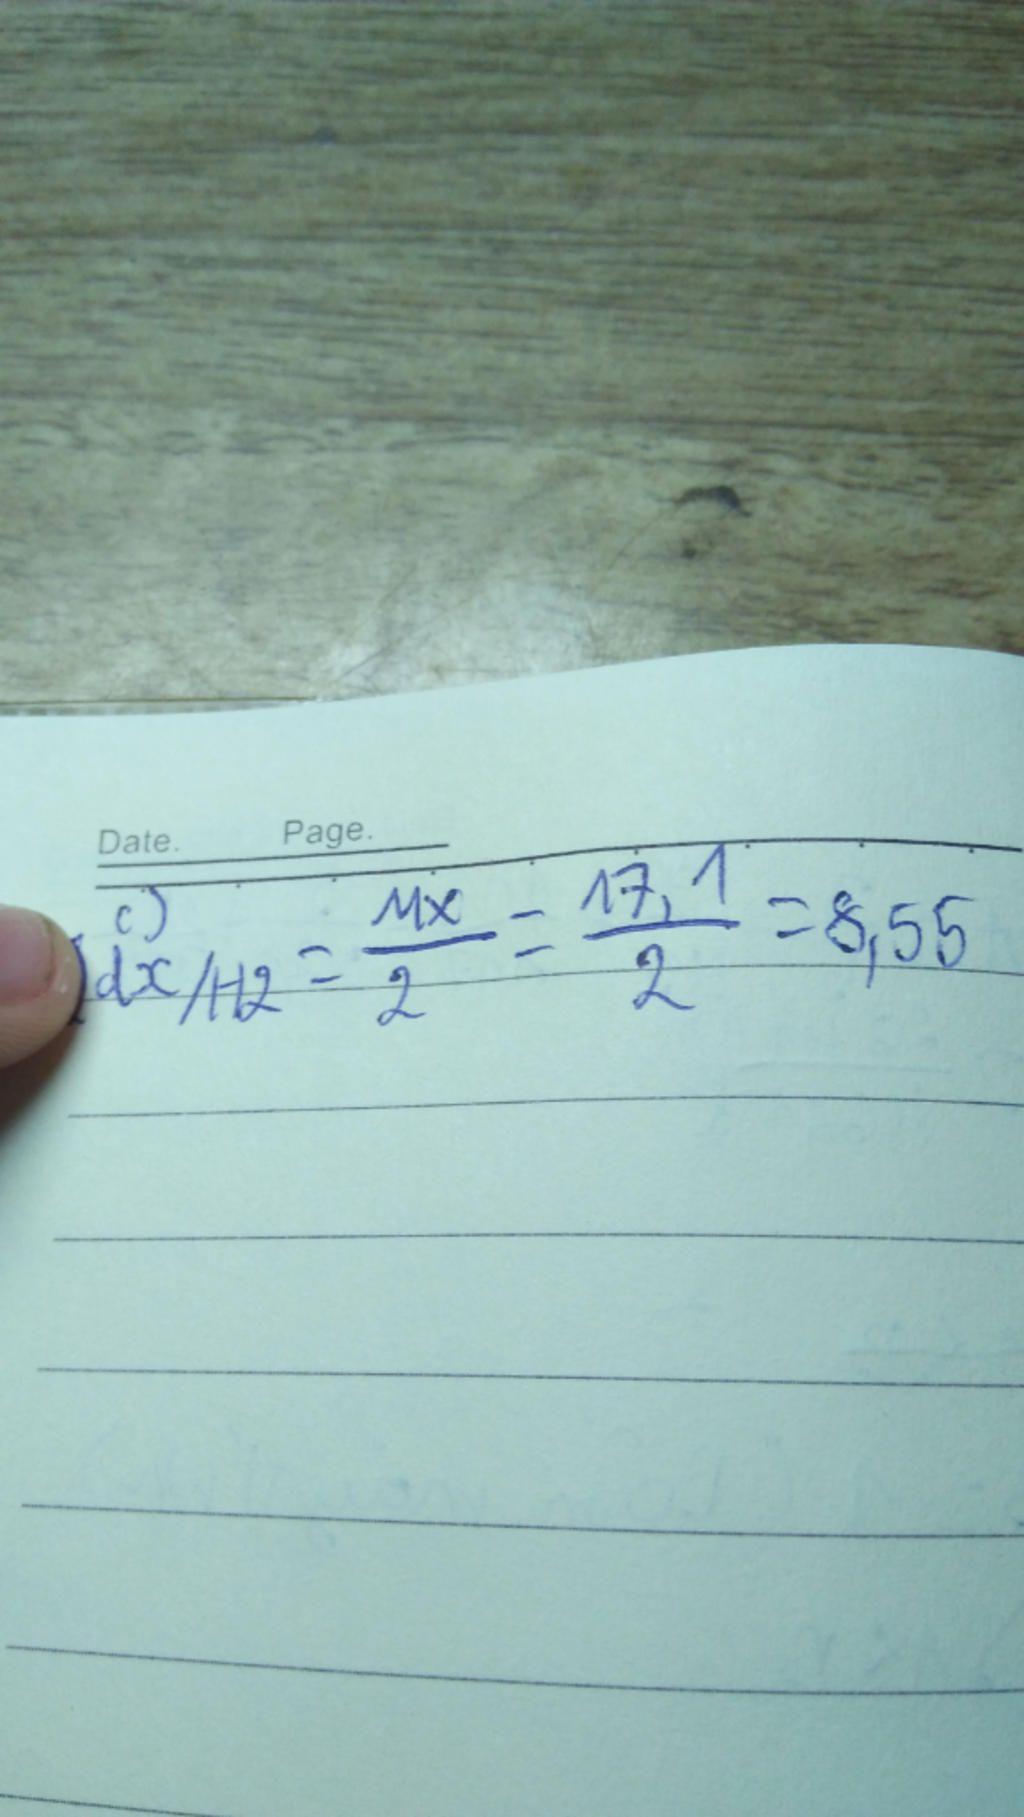 Date. Page.
c)
dx/H2 = Mx/2 = 17,1/2 = 8,55